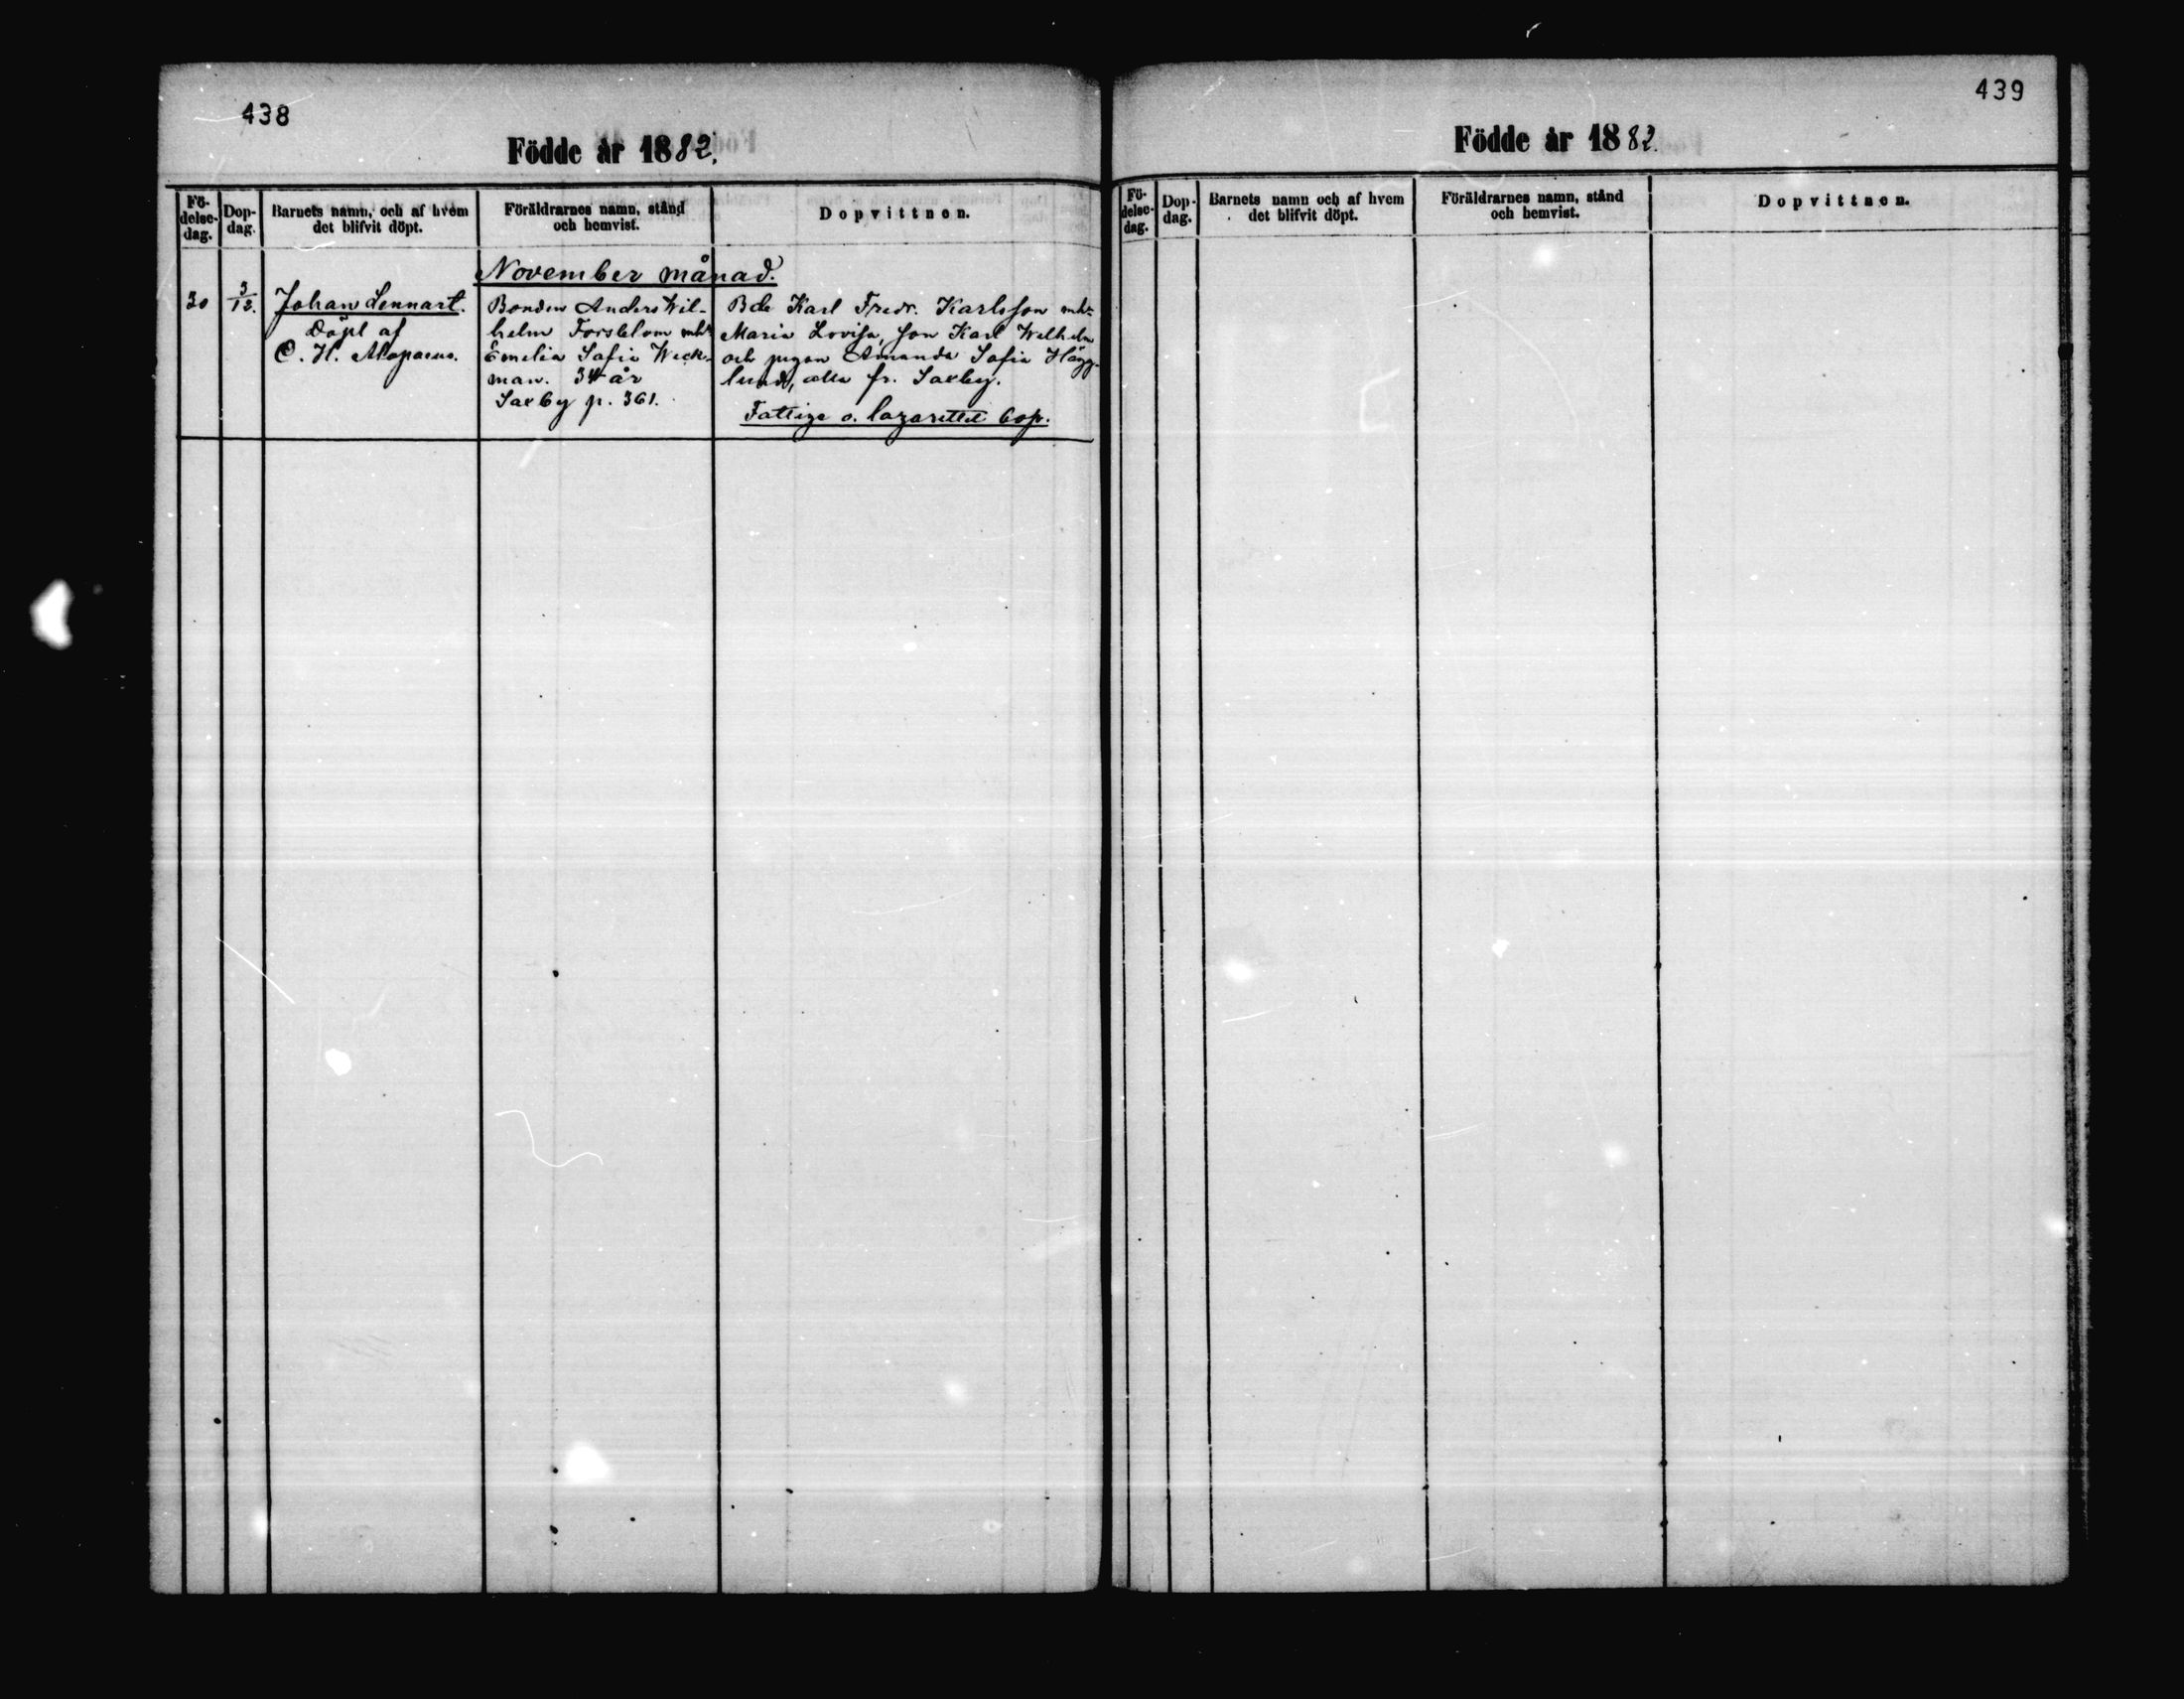 438
Födde år 1882.
Fö-
delse-
dag.
Dop-
dag.
Barnets namn, och af hvem
det blifvit döpt.
Föräldrarnes namn, stånd
och hemvist.
Dopvittnen.
November månad.
30
3/12.
Johan Lennart.
Döpt af
C. H. Alopaeus.
Bonden Anders Wil-
helm Forsblom mhu
Emelia Sofia Weck-
man. 34 år
Saxby p. 361.
Bde Karl Fredr. Karlsson mh-
Maria Lovisa, son Karl Wilhelm
och pigan Amanda Sofia Hägg-
lund, alla fr. Saxby.
Fattige o. lazarettet 60 p.
439
Födde år 1882.
Fö-
delse-
dag.
Dop-
dag.
Barnets namn och af hvem
det blifvit döpt.
Föräldrarnes namn, stånd
och hemvist.
Dopvittnen.